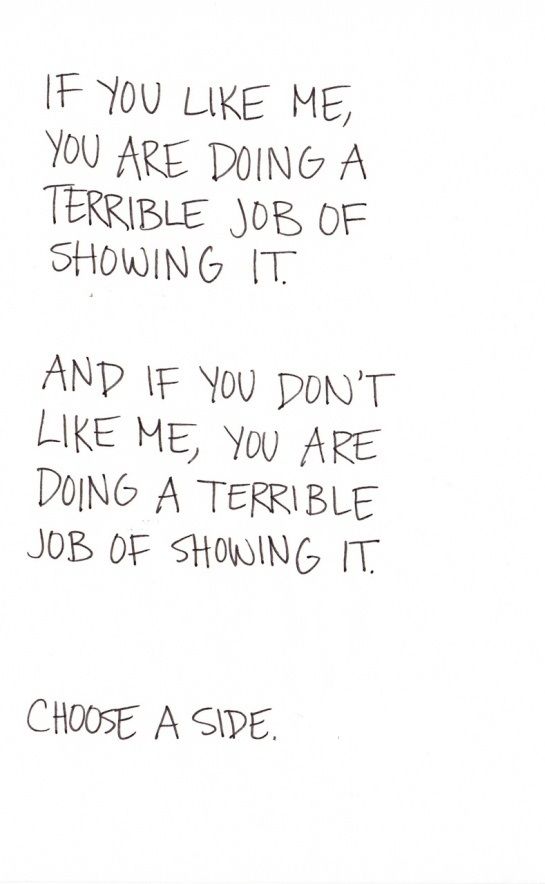 IF YOU LIKE ME,
YOU ARE DOING A
TERRIBLE JOB OF
SHOWING IT.
AND IF YOU DON'T
LIKE ME, YOU ARE
DOING A TERRIBLE
JOB OF SHOWING IT.
CHOOSE A SIDE.